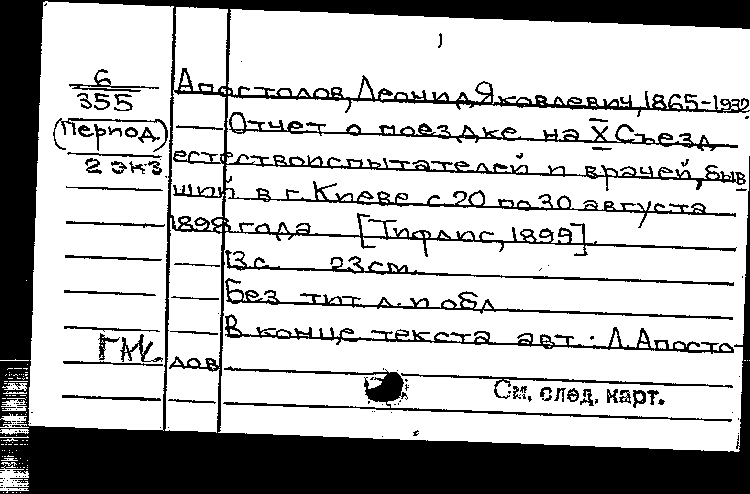 1
6
355
(Период)
2 экз
Апостолов, Леонид Яковлевич, 1865-1932.
Отчет о поездке на X Съезд
естествоиспытателей и врачей, быв
ший в г. Киеве с 20 по 30 августа
1898 года [Тифлис, 1899].
13 с. 23 см.
Без тит. л. и обл
В конце текста авт.: Л. Апосто-
лов
См. след. карт.